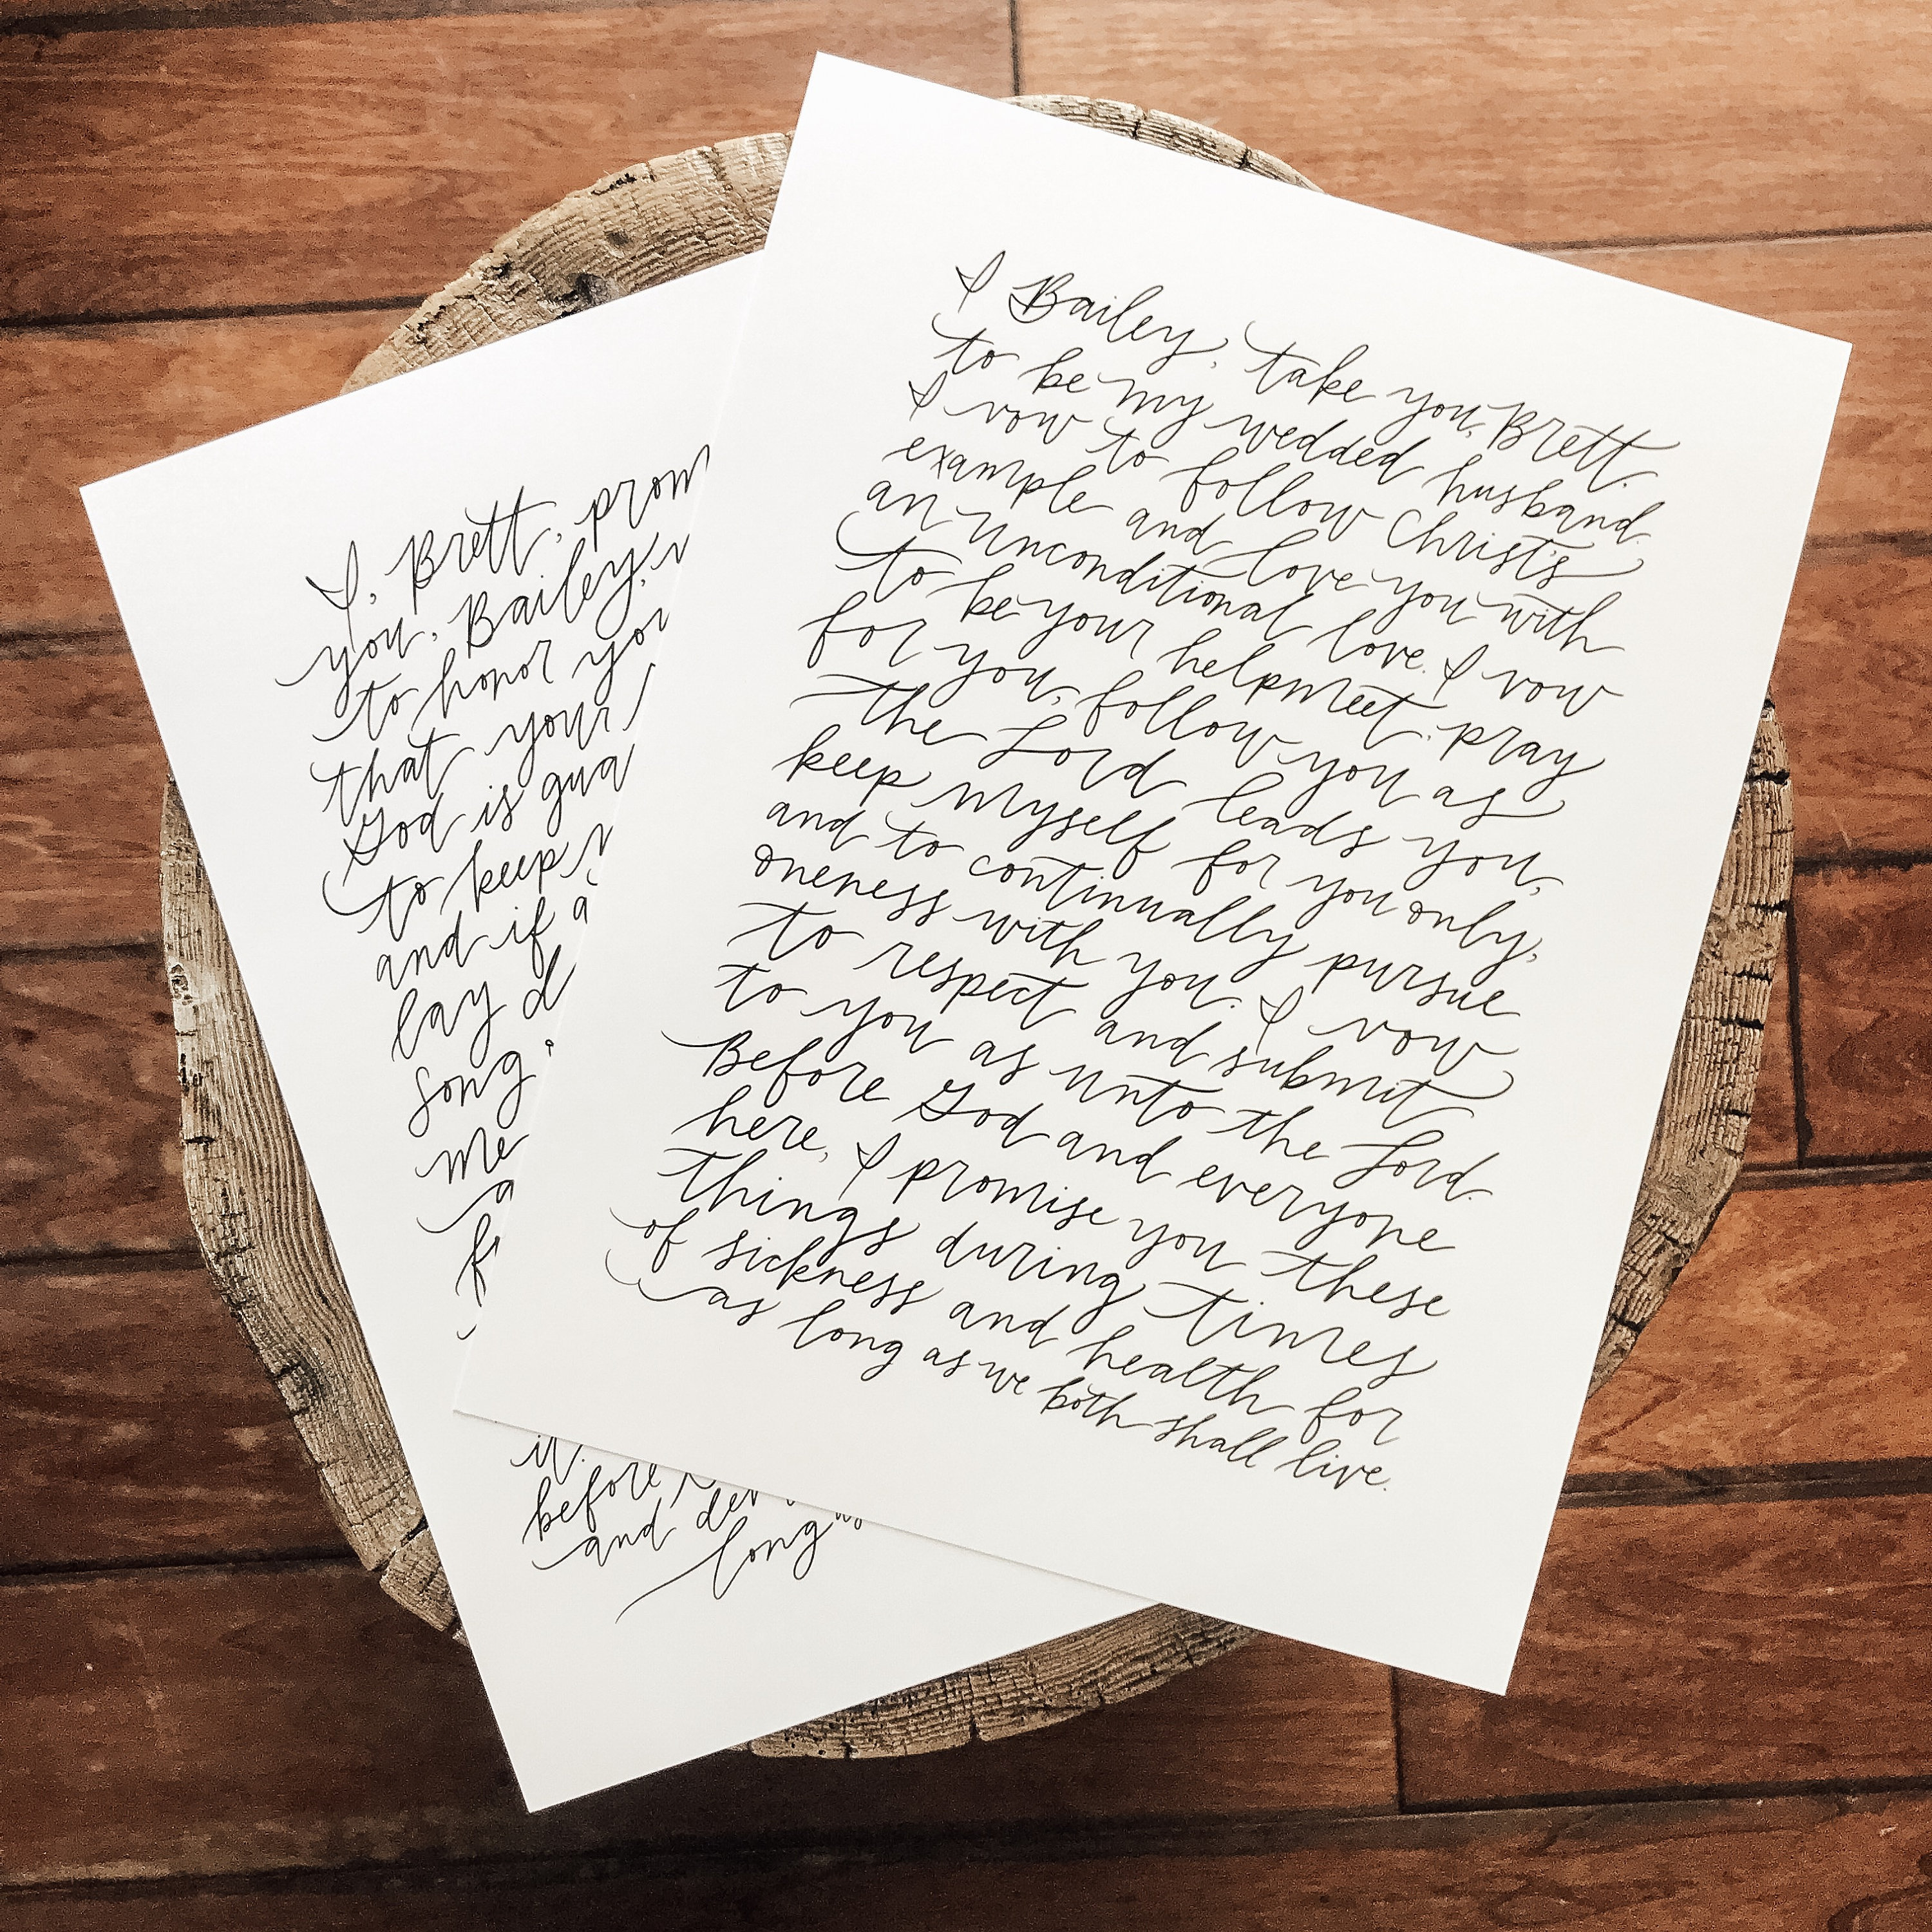 I, Brett,
you, Bailey,
to honor
that your
God is
to keep
and if a
lay
song
me
a
it.
before
and
long as
I Bailey, take you, Brett.
to be my wedded husband.
I vow to follow Christ's
example and love you with
an unconditional love. I vow
to be your helpmeet, pray
for you, follow you as
the Lord leads you,
keep myself for you only,
and to continually pursue
oneness with you. I vow
to respect and submit
to you as unto the Lord.
Before God and everyone
here, I promise you these
things during times
of sickness and health for
as long as we both shall live.